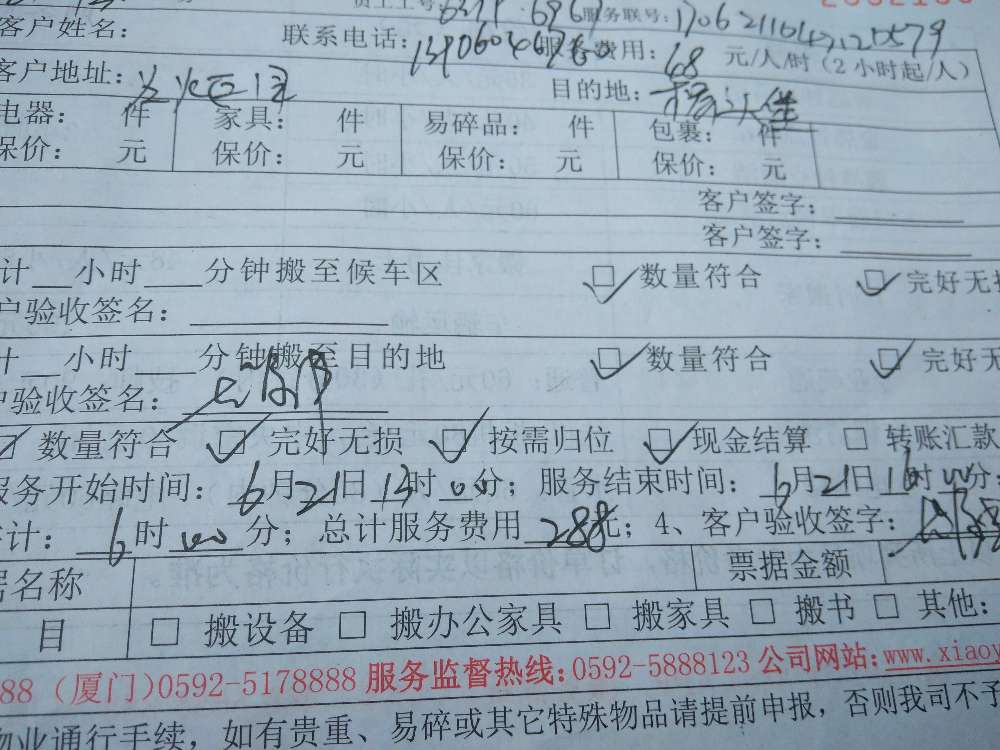 客户姓名： 联系电话： 服务费用：68元/人/时（2小时起/人）
客户地址： 目的地：
电器： 件 家具： 件 易碎品： 件 包裹： 件
保价： 元 保价： 元 保价： 元 保价： 元
客户签字：
客户签字：
计 小时 分钟搬至候车区 数量符合 完好无损
户验收签名：
计 小时 分钟搬至目的地 数量符合 完好无
户验收签名：
数量符合 完好无损 按需归位 现金结算 转账汇款
服务开始时间：6月21日13时00分；服务结束时间：6月21日16时00分；
计：6时00分；总计服务费用288元；4、客户验收签字：
据名称 票据金额
目 搬设备 搬办公家具 搬家具 搬书 其他：
88（厦门)0592-5178888 服务监督热线:0592-5888123 公司网站:www.xiaoy
物业通行手续，如有贵重、易碎或其它特殊物品请提前申报，否则我司不予